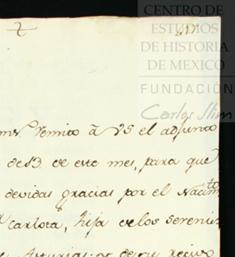 CENTRO DE
ESTUDIOS
DE HISTORIA
DE MEXICO
FUNDACIÓN
Carlos Slim
remito à VS el adjunto
de 13 de este mes, para que
devidas gracias por el Nacim.to
Carlota, hija de los Sereni
Asturias: de su recivo